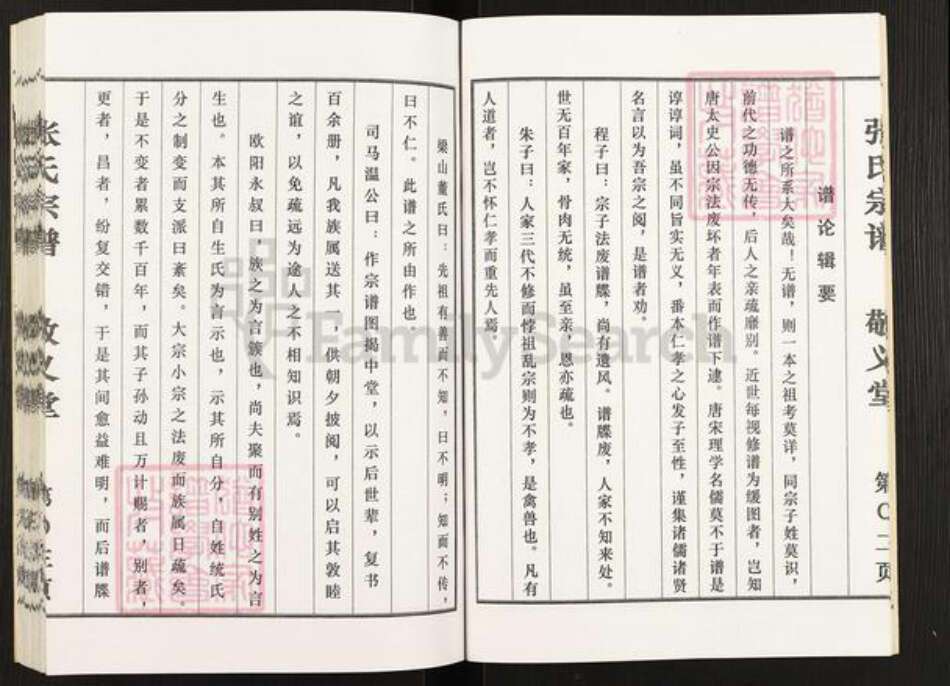 张氏宗谱 敬义堂 第〇二页
谱论辑要
谱之所系大矣哉！无谱，则一本之祖考莫详，同宗子姓莫识，
前代之功德无传，后人之亲疏靡别。近世每视修谱为缓图者，岂知
唐太史公因宗法废坏者年表而作谱下逮。唐宋理学名儒莫不于谱是
谆谆词，虽不同旨实无义，番本仁孝之心发子至性，谨集诸儒诸贤
名言以为吾宗之阅，是谱者劝。
程子曰：宗子法废谱牒，尚有遗风。谱牒废，人家不知来处。
世无百年家，骨肉无统，虽至亲，恩亦疏也。
朱子曰：人家三代不修而悖祖乱宗则为不孝，是禽兽也。凡有
人道者，岂不怀仁孝而重先人焉。
梁山董氏曰：先祖有善而不知，曰不明；知而不传，
曰不仁。此谱之所由作也。
司马温公曰：作宗谱图揭中堂，以示后世辈，复书
百余册，凡我族属送其一，供朝夕披阅，可以启其敦睦
之谊，以免疏远为途人之不相知识焉。
欧阳永叔曰，族之为言簇也，尚夫聚而有别姓之为言
生也。本其所自生氏为言示也，示其所自分，自姓统氏
分之制变而支派曰紊矣。大宗小宗之法废而族属日疏矣。
于是不变者累数千百年，而其子孙动且万计赐者，别者，
更者，昌者，纷复交错，于是其间愈益难明，而后谱牒
张氏宗谱 敬义堂
FamilySearch